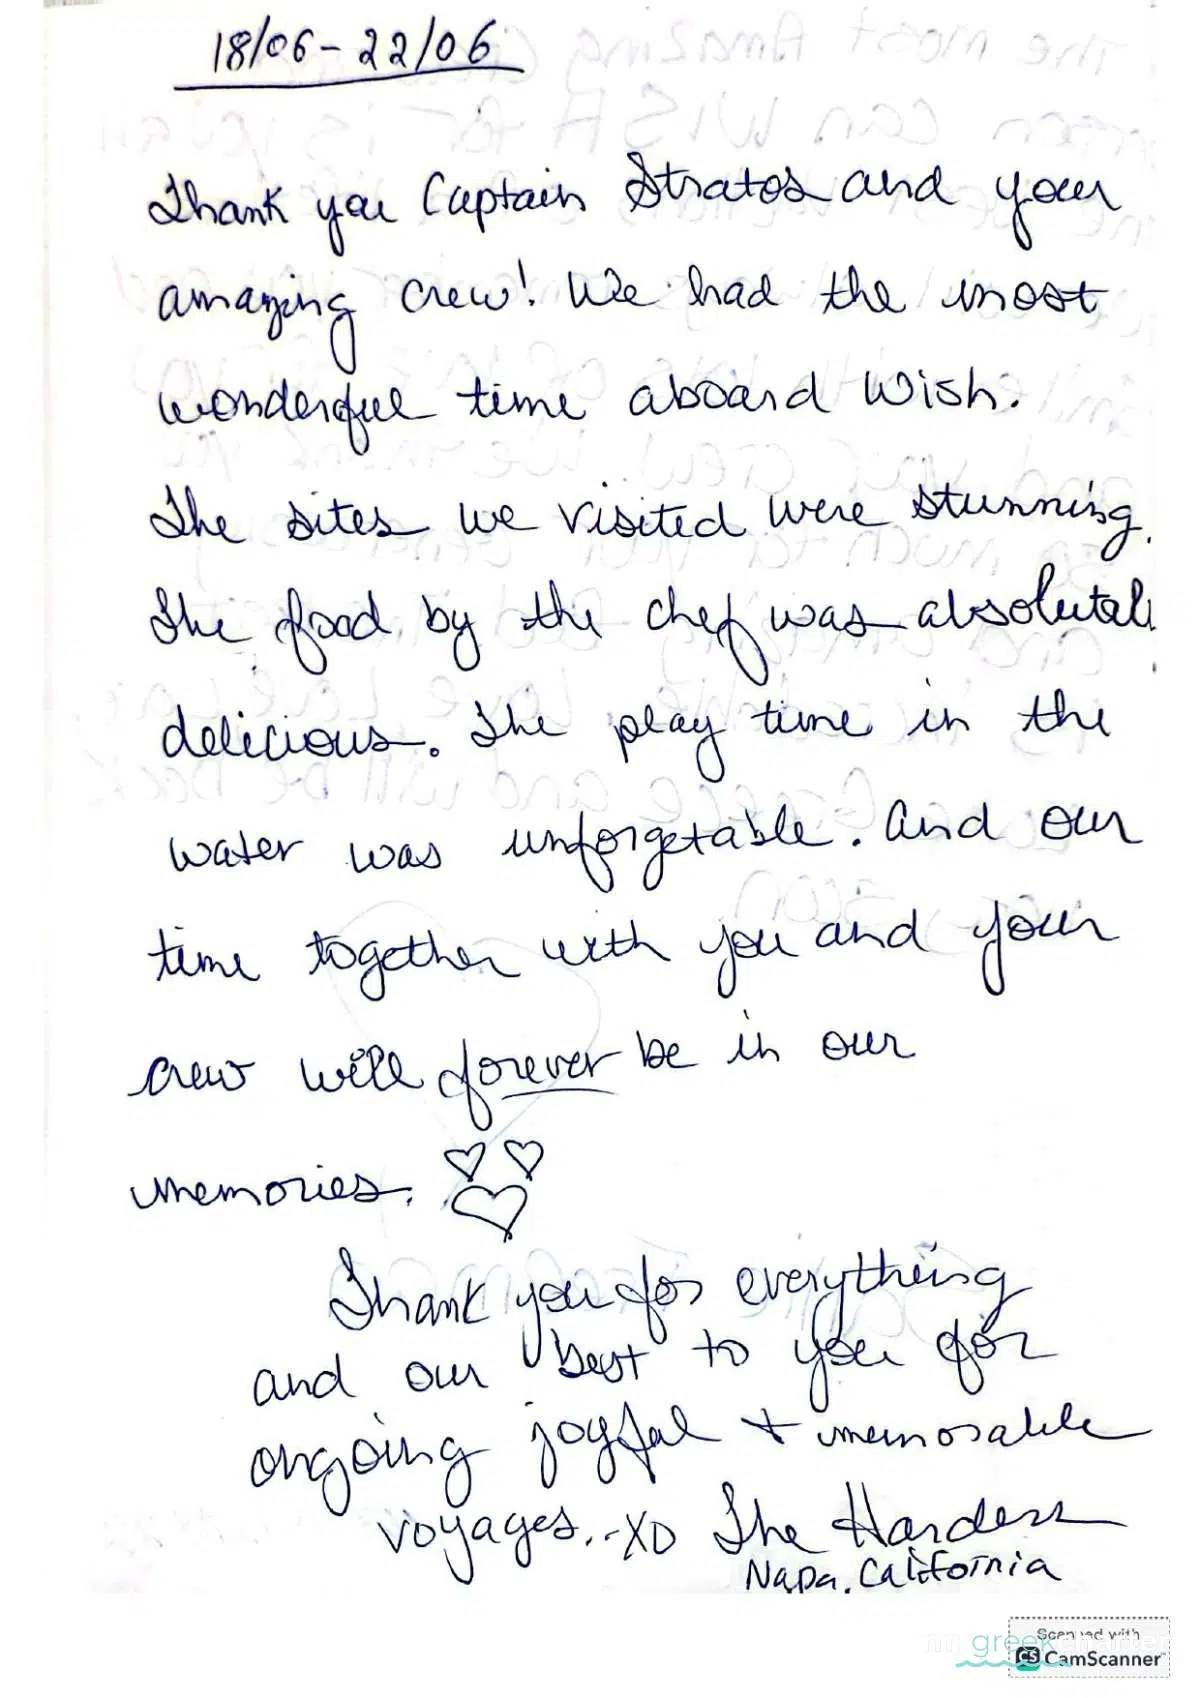 18/06 - 22/06
Thank you Captain Stratos and your
amazing crew! We had the most
wonderful time aboard Wish.
The sites we visited were stunning.
The food by the chef was absolutel
delicious. The play time in the
water was unforgetable. And our
time together with you and your
crew will forever be in our
memories.
Thank you for everything
and our best to you for
ongoing joyful + memorable
voyages. -XO The Harders
Napa, California
Scanned with
greekcharter
CS CamScanner